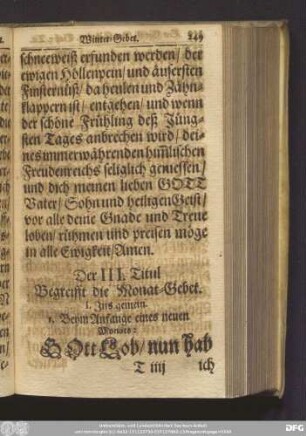 Winter-Gebet. 849
schneeweiß erfunden werden/ der
ewigen Höllenpein/ und äusersten
Finsternüß/ da heulen und Zähn-
klappern ist/ entgehen/ und wenn
der schöne Frühling deß Jüng-
sten Tages anbrechen wird/ dei-
nes immerwährenden him̃lischen
Freudenreichs seliglich geniessen/
und dich meinen lieben GOTT
Vater/ Sohn und heiligen Geist/
vor alle deine Gnade und Treue
loben/ rühmen und preisen möge
in alle Ewigkeit/ Amen.
Der III. Titul
Begreifft die Monat-Gebet.
I. Ins gemein.
1. Beym Anfange eines neuen
Monats:
GOtt Lob/ nun hab
T iiij ich